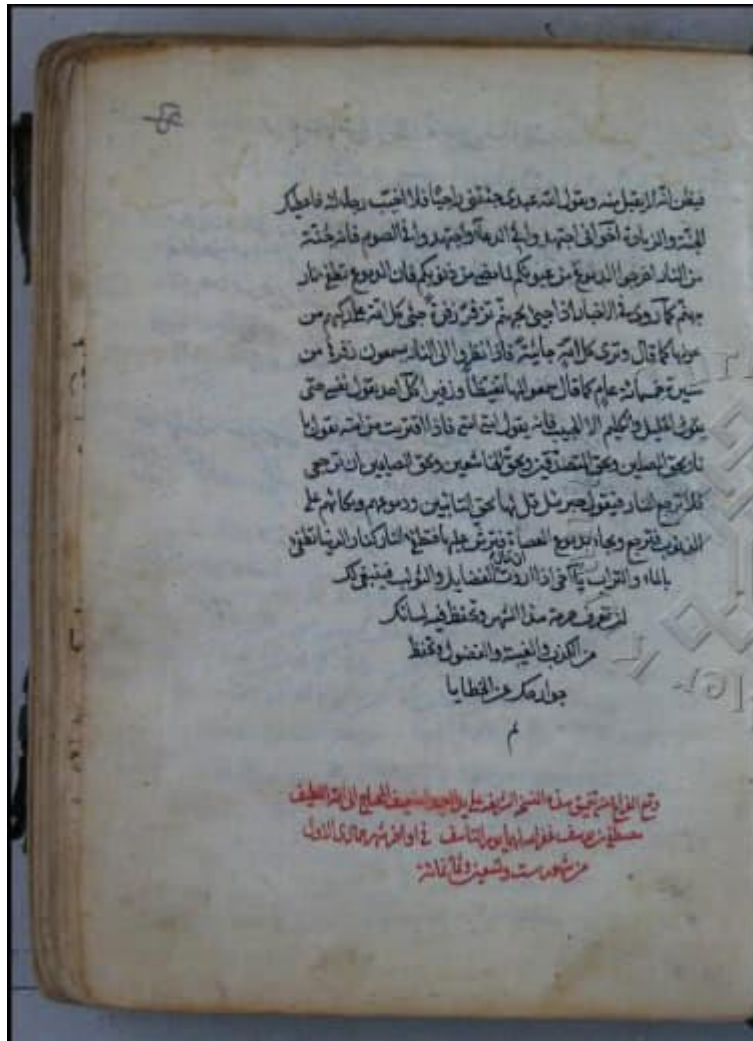 فيظن انه لا يقبل منه ويقول الله عبدي جئتني راجيا فلا اخيب رجاءك فاعطيك
الجنة والزيادة اخواني اجتهدوا في الدعاء واجتهدوا في الصوم فانه جنة
من النار اخرجوا الدموع من عيونكم لما مضى من ذنوبكم فان الدموع تطفئ نار
جهنم كما روى في الاخبار اذا جئ بجهنم تزفر زفرة جثى كل امة على ركبهم من
هولها كما قال وترى كل امة جاثية فاذا نظروا الى النار سمعون زفرة من
مسيرة خمسمائة عام كما قال سمعوا لها تغيظا وزفيرا كل احد يقول نفسي حتى
يقول الخليل والكليم الا الحبيب فانه يقول امتي امتي فاذا اقتربت من امته يقول يا
نار بحق المصلين وبحق المتصدقين وبحق الخاشعين وبحق الصايمين ان ترجعي
فلا ترجع النار فيقول جبرئيل قل لها بحق التائبين ودموعهم وبكائهم على
الذنوب فترجع ويجاء بدموع العصاة فيرش عليها فتطفئ النار كنار الدنيا تطفئ
بالماء والتراب يا اخي اذا اردت ان تنال الفضايل والثواب فينبغي لك
ان تعرف حرمة هذا الشهر وتحفظ فيه لسانك
من الكذب والغيبة والفضول وتحفظ
جوارحك عن الخطايا
م
وقع الفراغ من تنميق هذه النسخة الشريفة على يد العبد الضعيف المحتاج الى الله اللطيف
مصطفى بن يوسف في اواخر شهر جمادى الاول
من شهور ست وتسعين وثمانمائة